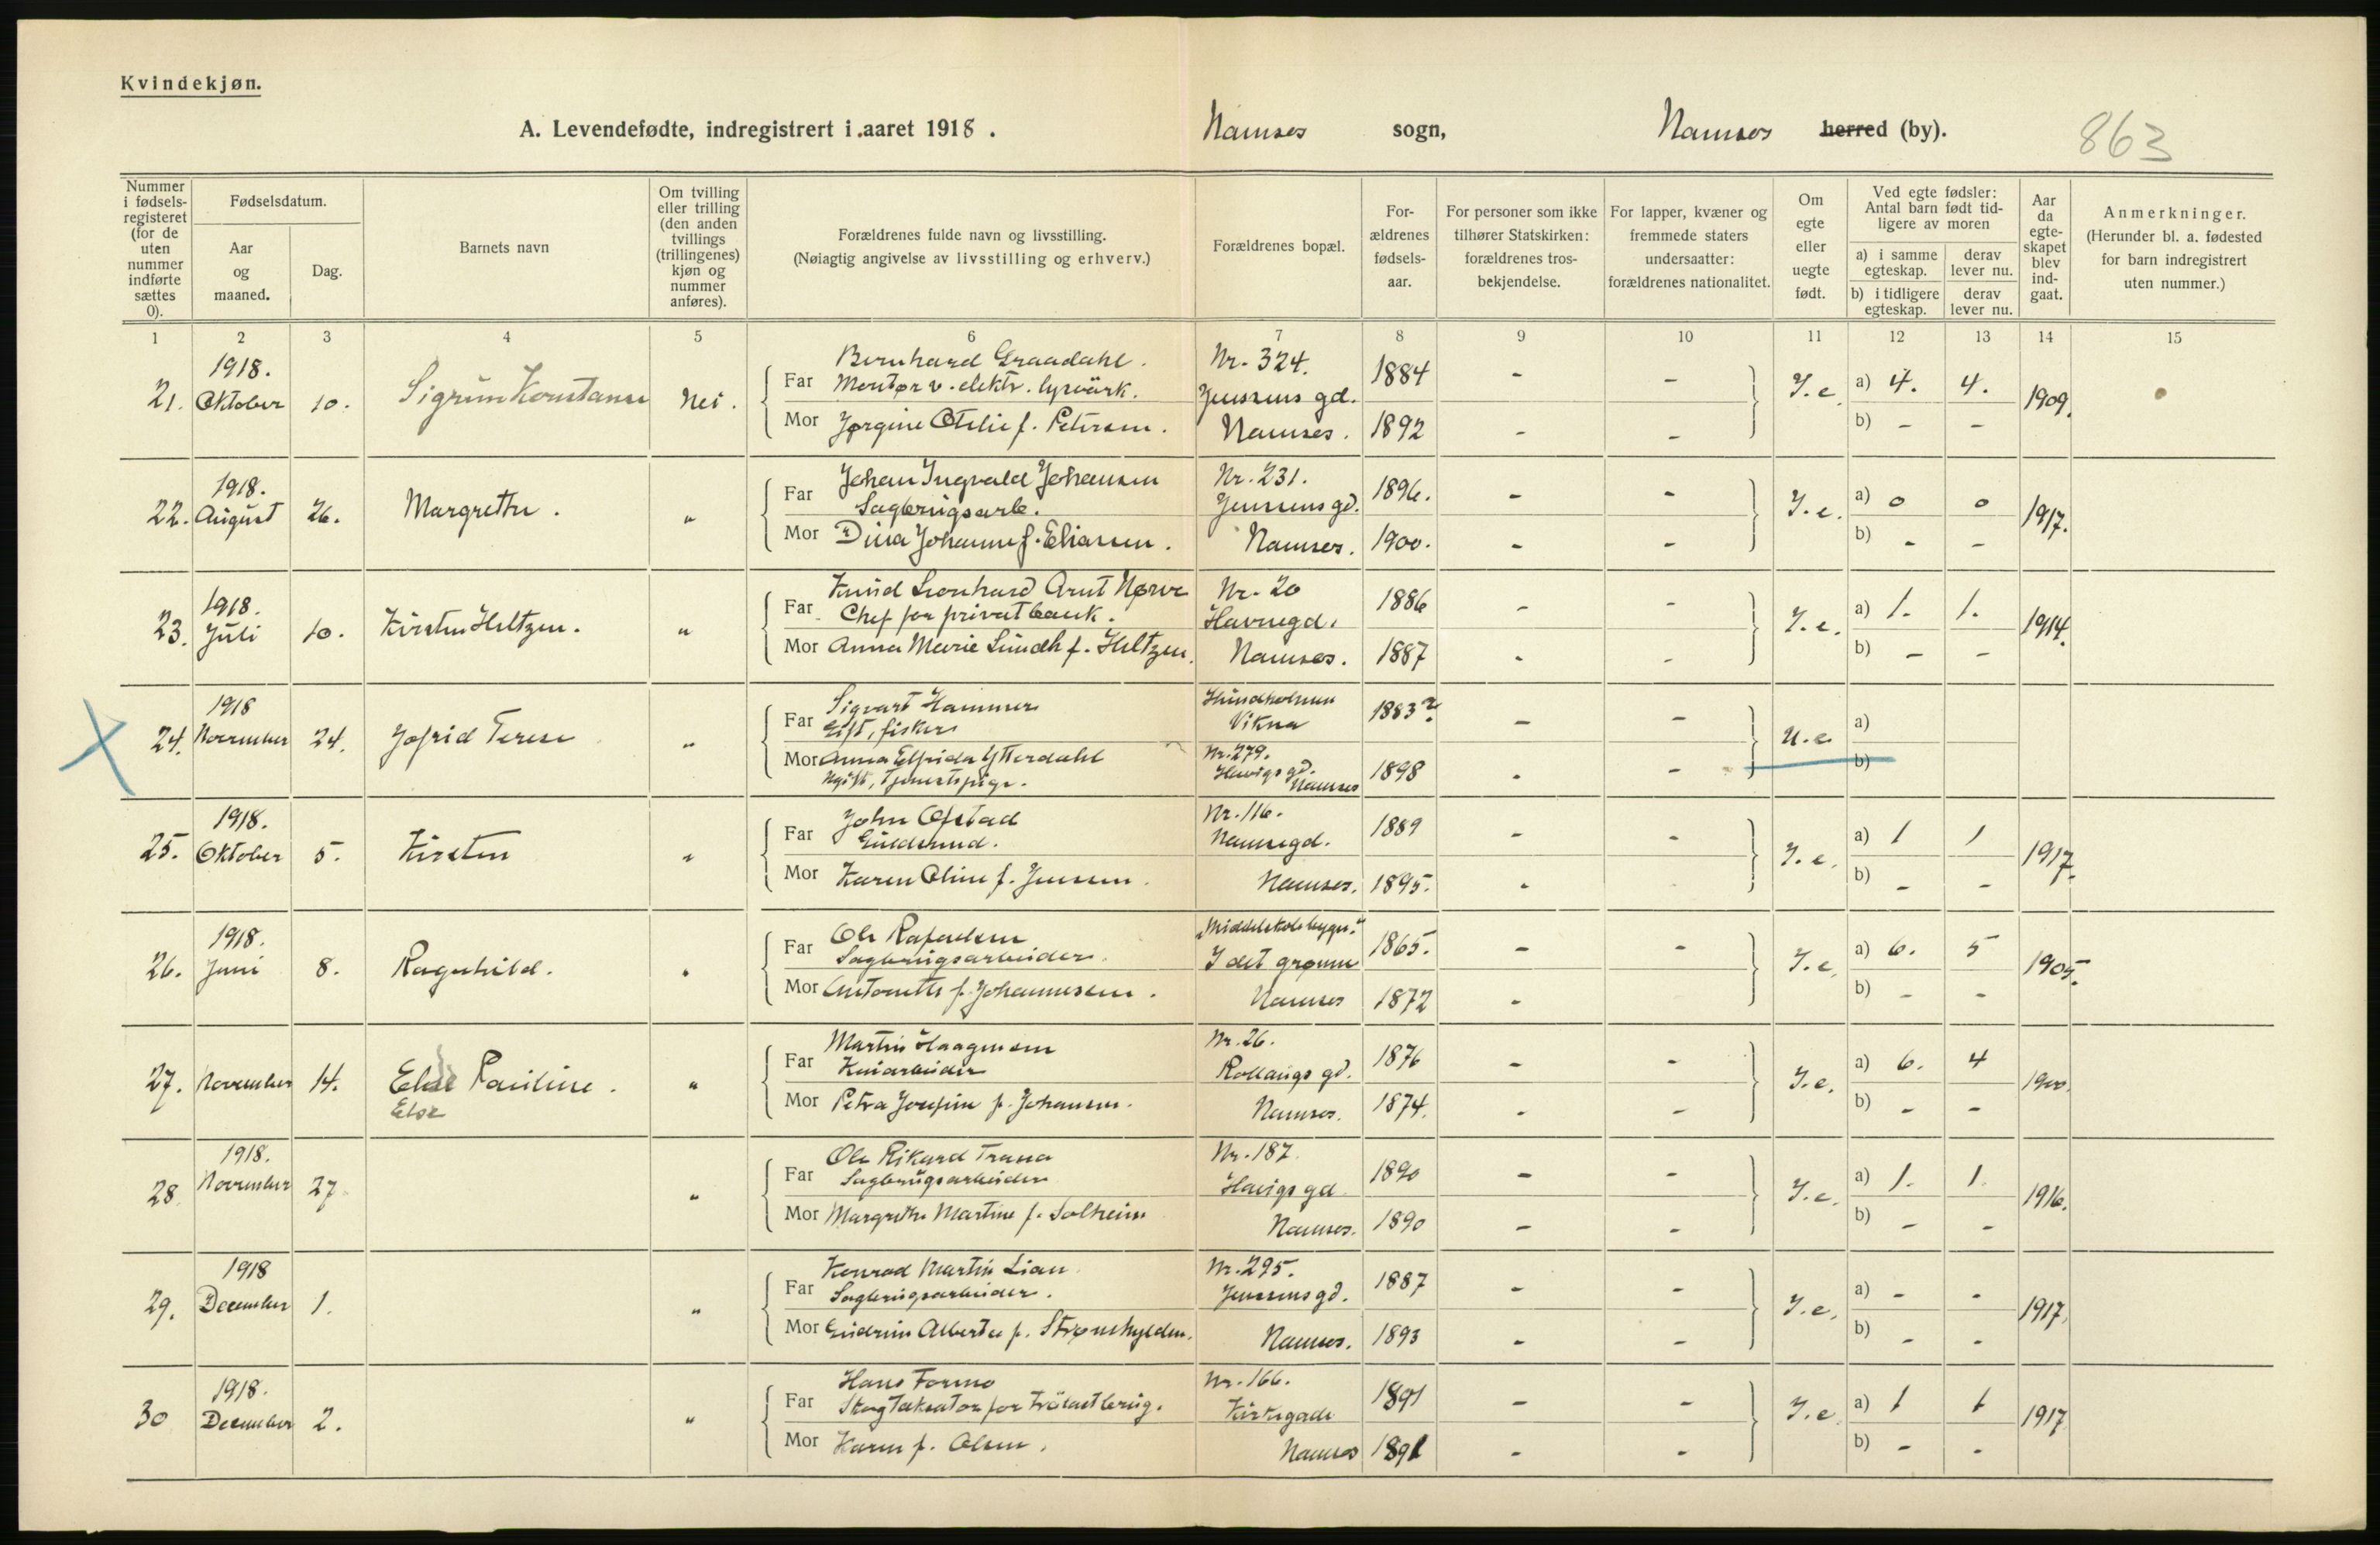 Kvindekjøn.
A. Levendefødte, indregistrert i aaret 1918. Namsos sogn, Namsos herred (by). 863
Nummer i fødselsregisteret (for de uten nummer indførte sættes 0).
Fødselsdatum.
Aar og maaned.
Dag.
Barnets navn
Om tvilling eller trilling (den anden tvillings (trillingenes) kjøn og nummer anføres).
Forældrenes fulde navn og livsstilling.
(Nøiagtig angivelse av livsstilling og erhverv.)
Forældrenes bopæl.
Forældrenes fødselsaar.
For personer som ikke tilhører Statskirken: forældrenes trosbekjendelse.
For lapper, kvæner og fremmede staters undersaatter: forældrenes nationalitet.
Om egte eller uegte født.
Ved egte fødsler: Antal barn født tidligere av moren
a) i samme egteskap. derav lever nu.
b) i tidligere egteskap. derav lever nu.
Aar da egteskapet blev indgaat.
Anmerkninger.
(Herunder bl. a. fødested for barn indregistrert uten nummer.)
1 2 3 4 5 6 7 8 9 10 11 12 13 14 15
1918. Bernhard Graadahl. Nr. 324.
21. Oktober 10. Sigrun Konstanse Nei. Far Montør v. elektr. lysværk. Jenssens gd. 1884 - - I.e. a) 4. 4. 1909.
Mor Jørgine Otelie f. Petersen. Namsos. 1892 - - b) - -
1918. Johan Ingvald Johansen Nr. 231.
22. August 26. Margrethe. " Far Sagbrugsarb. Jenssens gd. 1896. - - I.e. a) 0 0 1917.
Mor Dina Johanne f. Eliassen. Namsos. 1900. - - b) - -
1918. Knud Leonhard Arnt Nørve Nr. 20
23. Juli 10. Kirsten Heltzen. " Far Chef for privatbank. Havnegd. 1886 - - I.e. a) 1. 1. 1914.
Mor Anna Marie Lundh f. Heltzen. Namsos. 1887 - - b) - -
1918 Sigvart Hammer Hundholmen
24. November 24. Jofrid Terese " Far Gift, fisker Vikna 1883? - - U.e. a)
Mor Anna Elfrida Ytterdahl Nr. 279. Havigs gd. 1898 - - b)
Ugift, Tjenestepige. Namsos
1918. John Ofstad Nr. 116.
25. Oktober 5. Kirsten " Far Guldsmed. Namsegd. 1889 - - I.e. a) 1 1 1917.
Mor Karen Oline f. Jenssen. Namsos. 1895. - - b) - -
1918. Ole Rafaelsen "Middelskolebygn."
26. Juni 8. Ragnhild. " Far Sagbrugsarbeider. I det grønne 1865. - - I.e. a) 6. 5 1905.
Mor Antonette f. Johannesen. Namsos 1872 - b) - -
Martin Haagensen Nr. 26.
27. November 14. Else Pauline. " Far Kaiarbeider Rollaugs gd. 1876 - - I.e. a) 6. 4 1900.
Else Mor Petra Josefine f. Johansen. Namsos. 1874. - - b) - -
1918. Ole Rikard Trana Nr. 187.
28 November 27 " Far Sagbrugsarbeider Havigs gd 1890 - - I.e. a) 1. 1. 1916.
Mor Margrethe Martine f. Solheim Namsos. 1890 - - b) - -
1918 Konrad Martin Lian Nr. 295.
29. December 1. " Far Sagbrugsarbeider. Jenssens gd. 1887 - - I.e. a) - - 1917.
Mor Gudrun Alberta f. Strømhylden. Namsos. 1893 - - b) - -
1918. Hans Formo Nr. 166.
30 December 2. " Far Skogtaksator for trælastbrug. Kirkegade 1891 - - I.e. a) 1 1 1917
Mor Karen f. Olsen. Namsos 1891 - - b) - -